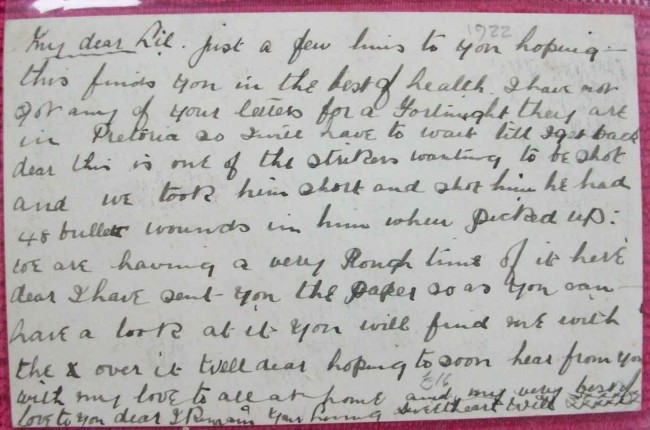 1922
My dear Lil. just a few lines to you hoping
this finds you in the best of health. I have not
got any of your letters for a Fortinght they are
in Pretoria so I will have to wait till I get back
dear this is one of the strikers wanting to be shot
and we took him short and shot him he had
48 bullet wounds in him when picked up:
we are having a very Rough time of it here
dear I have sent you the paper so as you can
have a look at it you will find me with
the X over it Well dear hoping to soon hear from you
£16
with my love to all at home and my very best of
love to you dear I Remain your loving sweetheart Will xxxxx